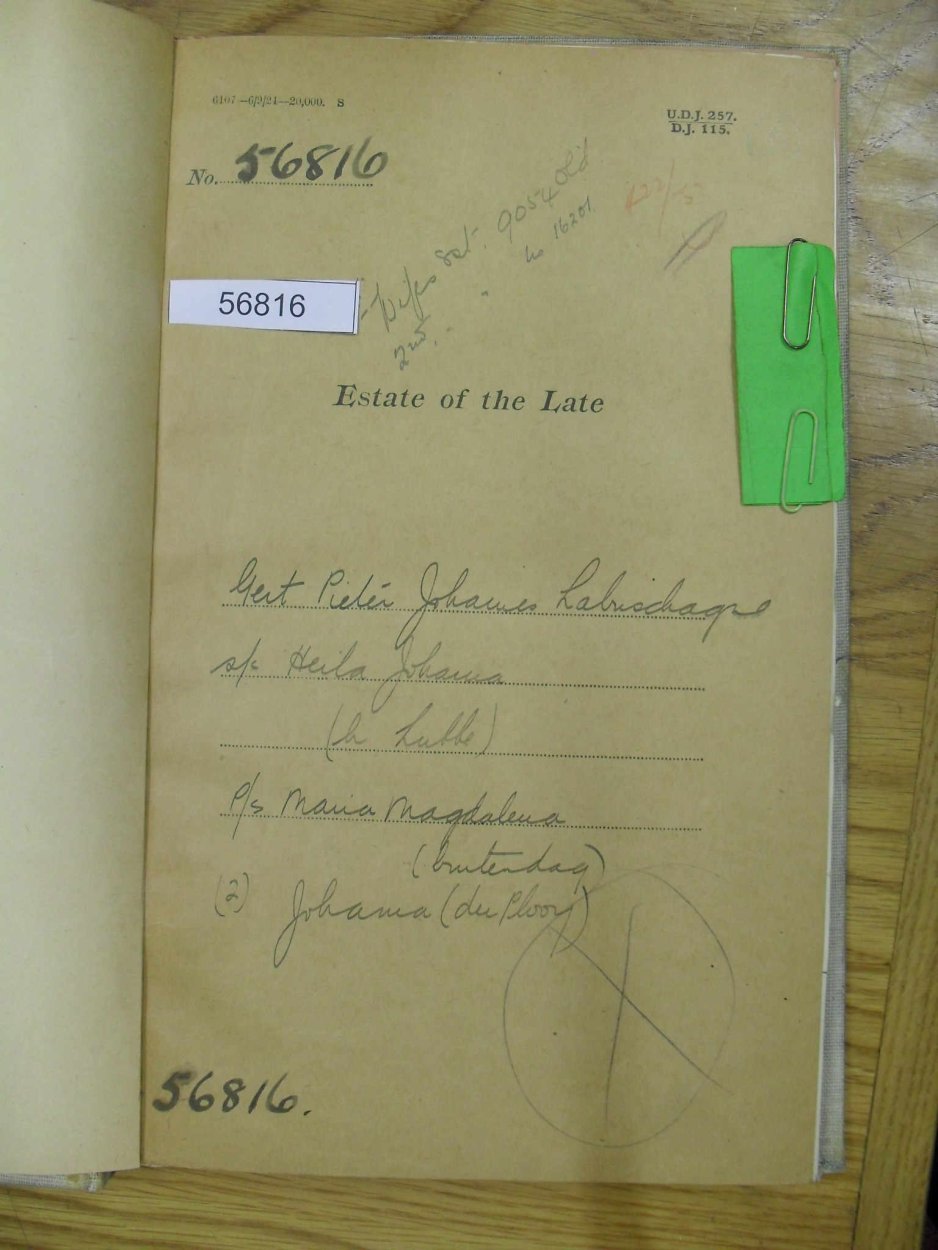 6107—6/9/24—20,000. S
U.D.J. 257.
D.J. 115.
No. 56816
Wifes Est. 9054 Old
2nd " " No 16201.
56816
Estate of the Late
Gert Pieter Johannes Labuschagne
s/s Heila Johanna
(b Lubbe)
p/s Maria Magdalena
(buitendag)
(2) Johanna (du Plooy)
56816.